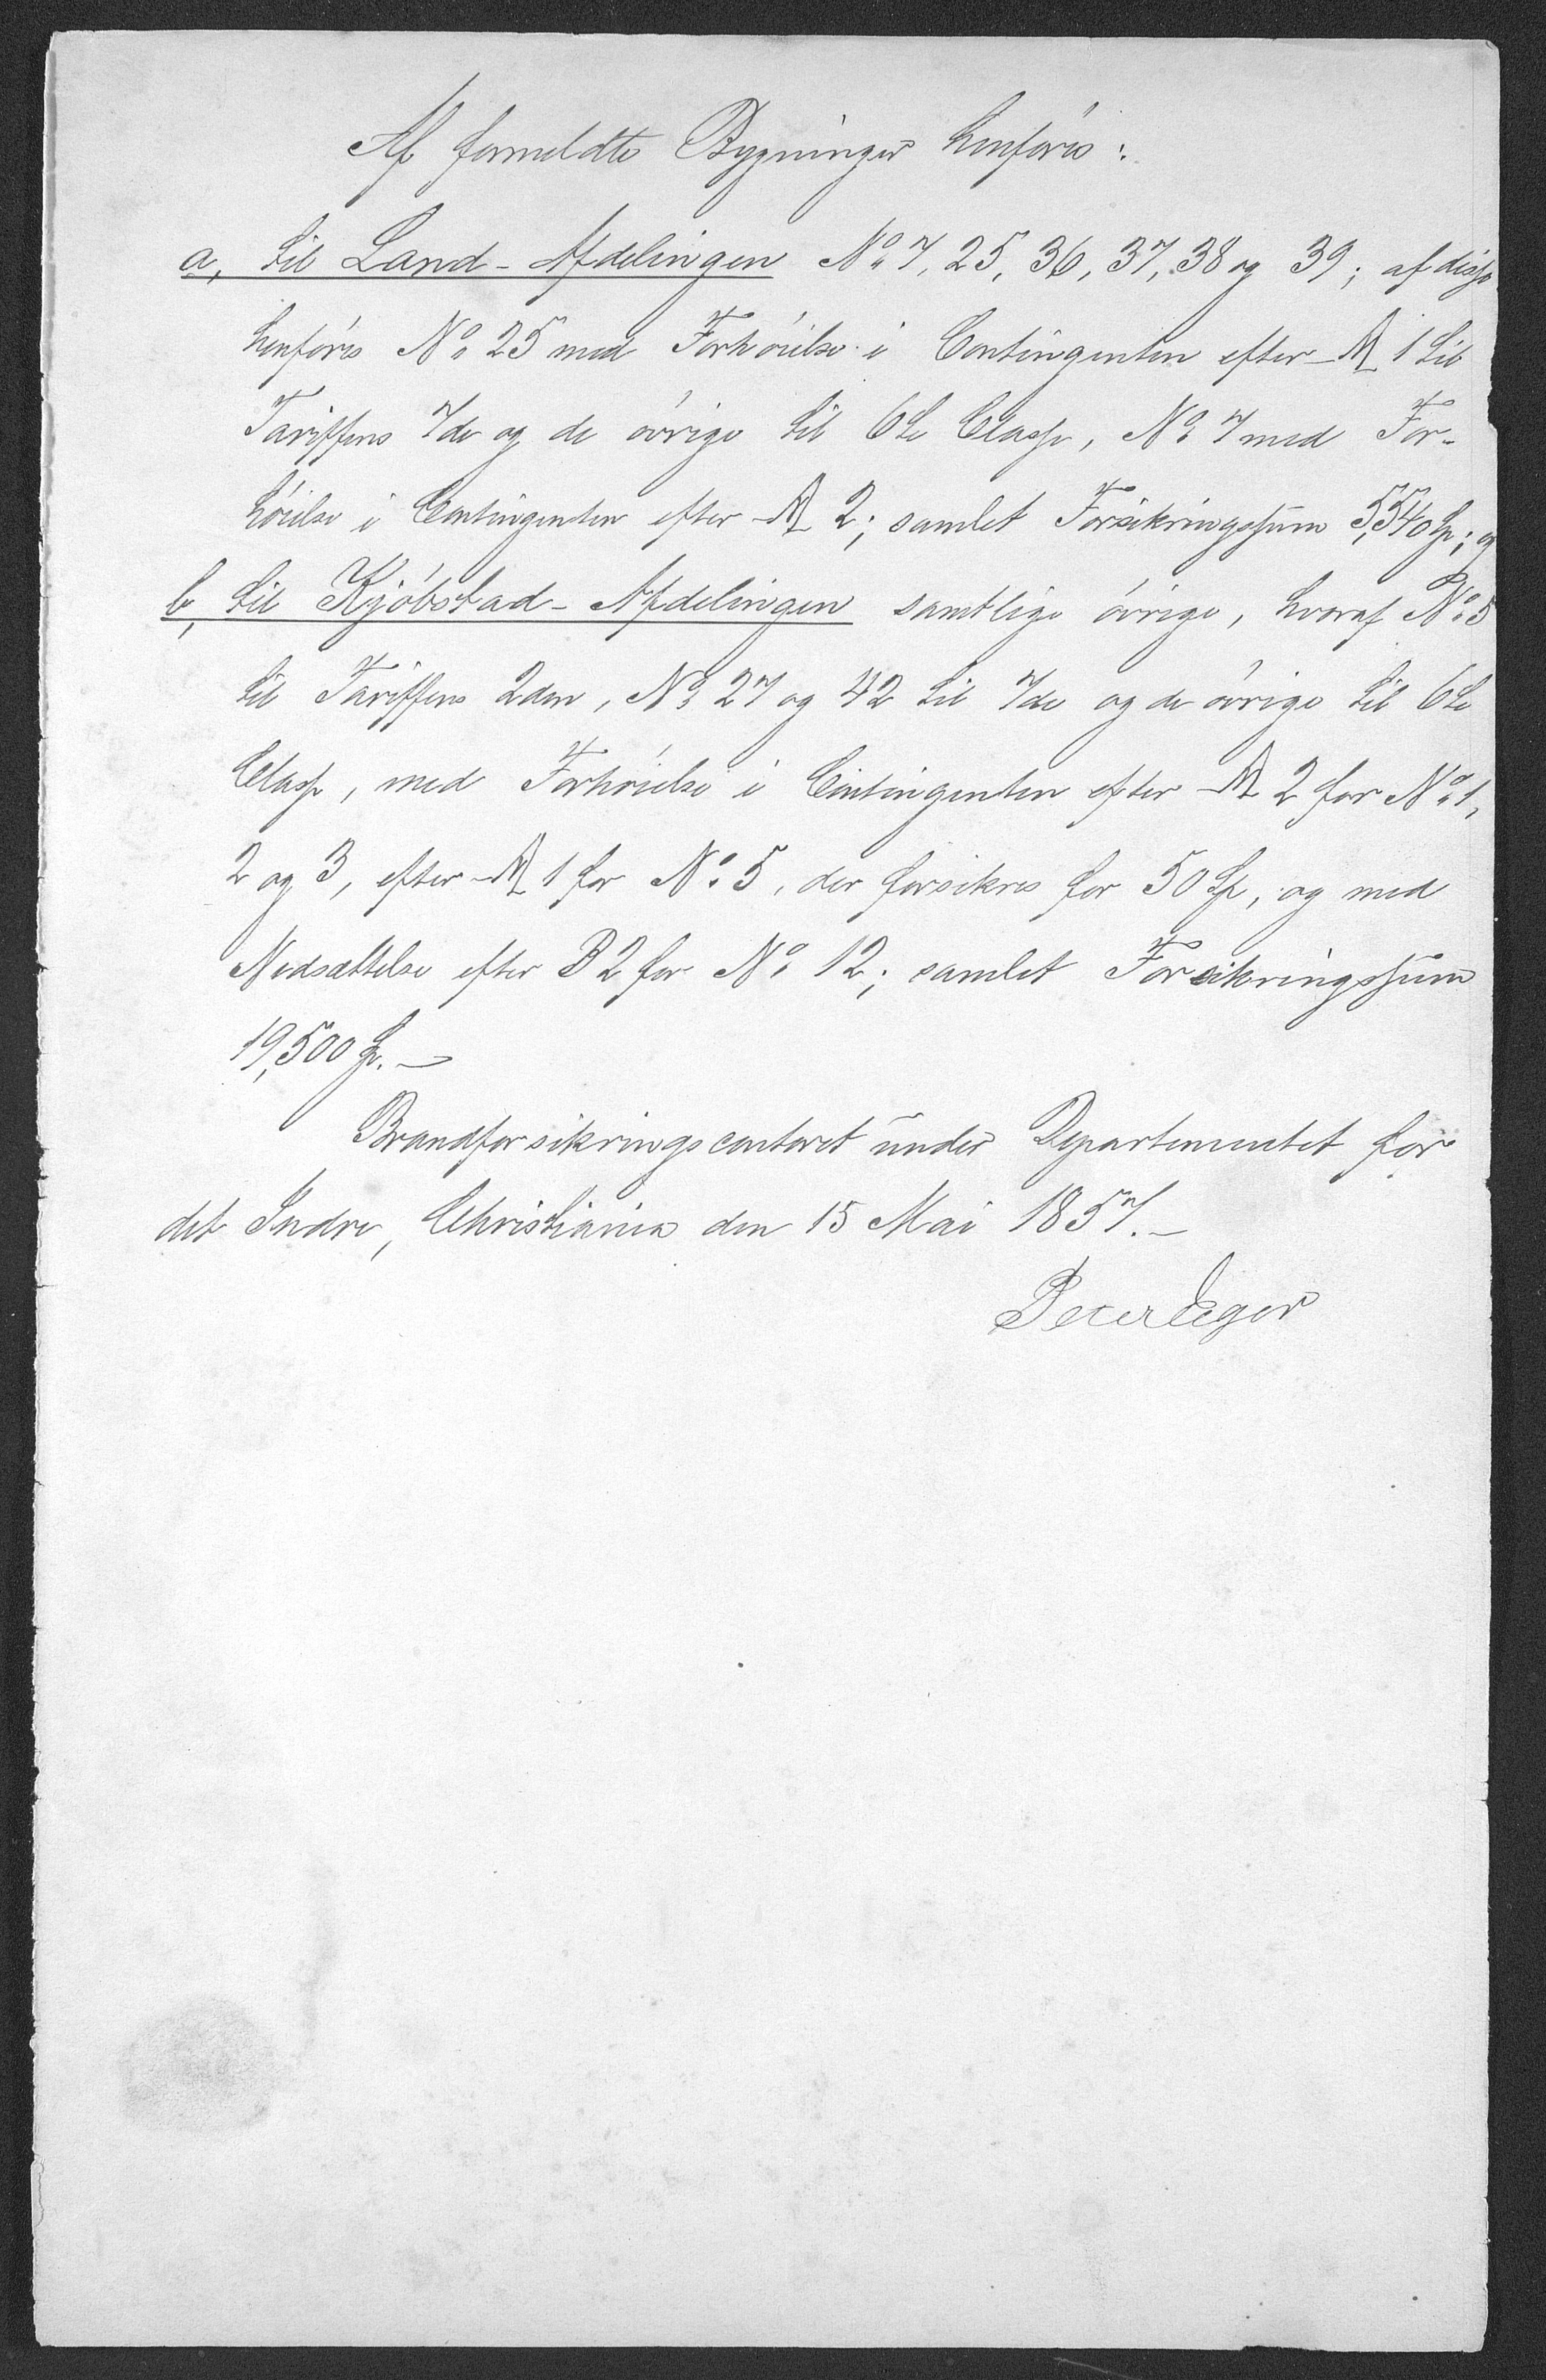 Af formeldte Bygninger henføres:
a, til Land-Afdelingen No 7, 25, 36, 37, 38 og 39; af disse
henføres No 25 med Forhøielse i Contingenten efter A 1 til
Tariffens 7de og de øvrige til 6te Classe, No 7 med For-
høielse i Contingenten efter A 2; samlet Forsikringssum 5,540 Sp; og
b, til Kjøbstad-Afdelingen samtlige øvrige, hvoraf No 5
til Tariffens 2den, No 27 og 42 til 7de og de øvrige til 6te
Classe, med Forhøielse i Contingenten efter A 2 for No 1,
2 og 3, efter A 1 for No 5, der forsikres for 50 Sp, og med
Nedsættelse efter B 2 for No 12; samlet Forsikringssum
19,500 Sp. —
Brandforsikringscontoret under Departementet for
det Indre, Christiania den 15 Mai 1857. —
Peter Eger